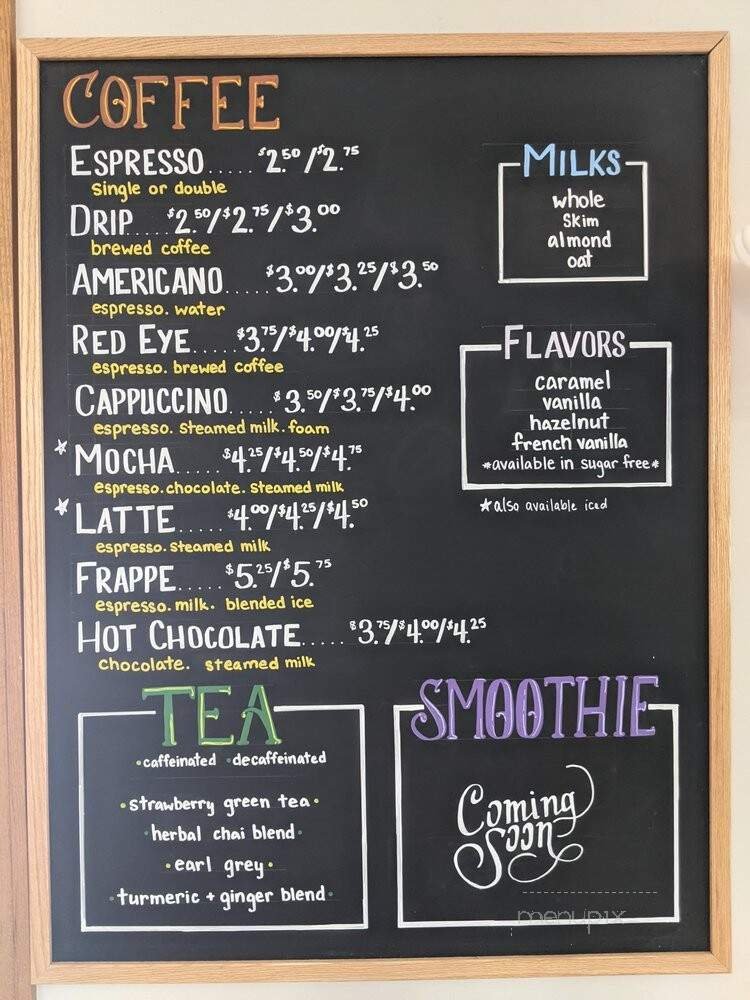 COFFEE
ESPRESSO..... $2.50/$2.75
single or double
DRIP.... $2.50/$2.75/$3.00
brewed coffee
AMERICANO..... $3.00/$3.25/$3.50
espresso. water
RED EYE..... $3.75/$4.00/$4.25
espresso. brewed coffee
CAPPUCCINO..... $3.50/$3.75/$4.00
espresso. steamed milk. foam
★ MOCHA..... $4.25/$4.50/$4.75
espresso. chocolate. steamed milk
★ LATTE..... $4.00/$4.25/$4.50
espresso. steamed milk
FRAPPE..... $5.25/$5.75
espresso. milk. blended ice
HOT CHOCOLATE..... $3.75/$4.00/$4.25
chocolate. steamed milk
MILKS
whole
skim
almond
oat
FLAVORS
caramel
vanilla
hazelnut
french vanilla
*available in sugar free*
★ also available iced
TEA
•caffeinated •decaffeinated
•strawberry green tea•
•herbal chai blend•
•earl grey•
•turmeric + ginger blend•
SMOOTHIE
Coming
Soon
menupix